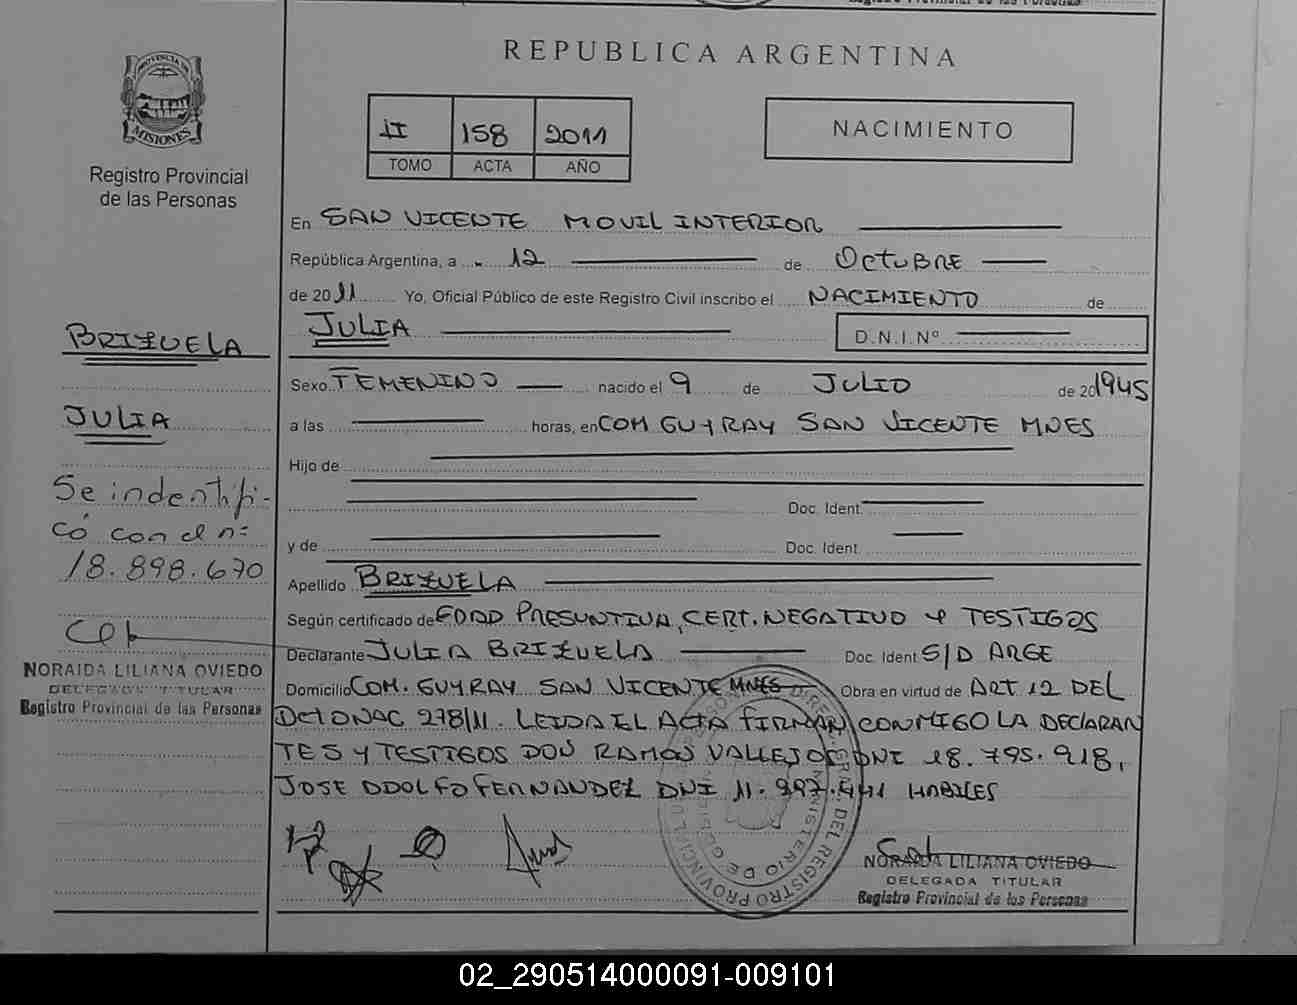 REPUBLICA ARGENTINA
PROVINCIA DE
MISIONES
Registro Provincial
de las Personas
II 158 2011
TOMO ACTA AÑO
NACIMIENTO
En SAN VICENTE MOVIL INTERIOR
República Argentina, a 12 de OCTUBRE
de 2011 Yo, Oficial Público de este Registro Civil inscribo el NACIMIENTO de
JULIA D.N.I.Nº
Sexo FEMENINO nacido el 9 de JULIO de 20 1945
a las horas, en COM GUYRAY SAN VICENTE MNES
Hijo de
Doc. Ident.
y de Doc. Ident.
Apellido BRIZUELA
Según certificado de EDAD PRESUNTIVA, CERT. NEGATIVO Y TESTIGOS
Declarante JULIA BRIZUELA Doc. Ident S/D ARGE
Domicilio COM. GUYRAY SAN VICENTE MNES Obra en virtud de ART 12 DEL
DCTO NAC 278/11. LEIDA EL ACTA FIRMAN CONMIGO LA DECLARAN
TES Y TESTIGOS DON RAMON VALLEJO DNI 18.795.918,
JOSE ODOLFO FERNANDEZ DNI 11. HABILES
NORAIDA LILIANA OVIEDO
DELEGADA TITULAR
Registro Provincial de las Personas
BRIZUELA
JULIA
Se indentifi-
có con el nº
18.898.670
NORAIDA LILIANA OVIEDO
DELEGADA TITULAR
Registro Provincial de las Personas
02_290514000091-009101